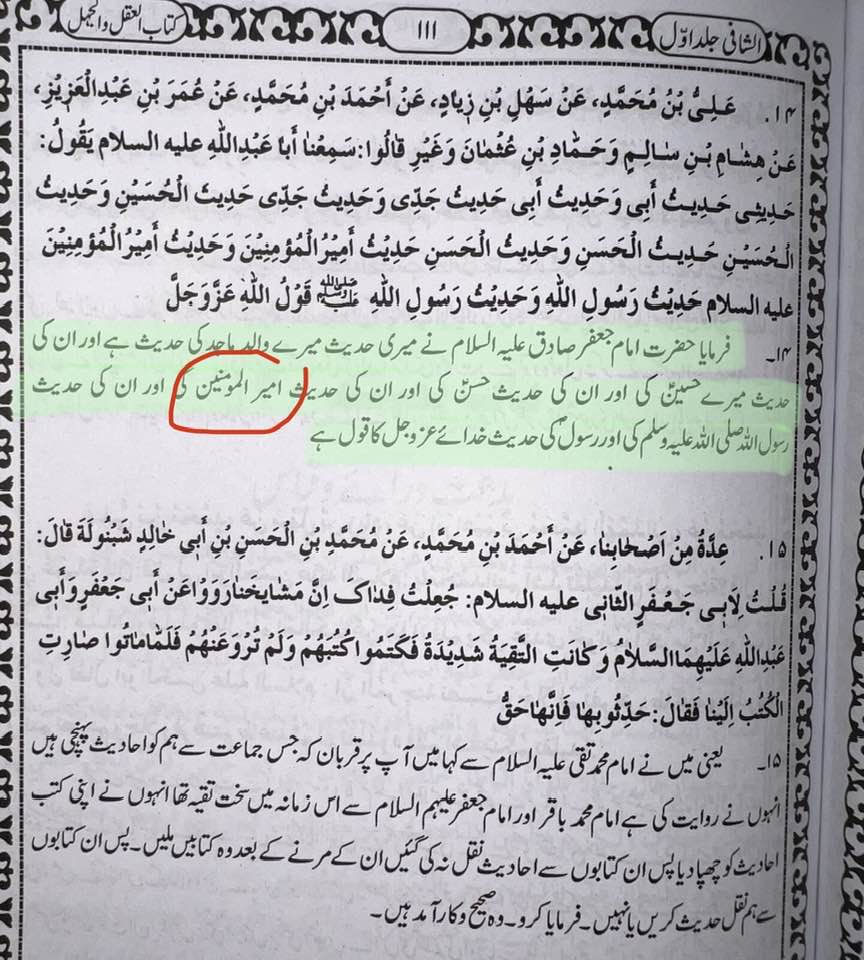 الشافی جلد اوّل
۱۱۱
کتاب العقل والجہل
۱۴. عَلِیُّ بْنُ مُحَمَّدٍ، عَنْ سَهْلِ بْنِ زِیادٍ، عَنْ أَحْمَدَ بْنِ مُحَمَّدٍ، عَنْ عُمَرَ بْنِ عَبْدِالْعَزِیْزِ،
عَنْ هِشامِ بْنِ سٰالِمٍ وَحَمّادِ بْنِ عُثْمٰانَ وَغَیْرِ قالُوا: سَمِعْنا أَبا عَبْدِاللّٰهِ علیه السلام یَقُولُ:
حَدِیثِی حَدِیثُ أَبِی وَحَدِیثُ أَبِی حَدِیثُ جَدِّی وَحَدِیثُ جَدِّی حَدِیثُ الْحُسَیْنِ وَحَدِیثُ
الْحُسَیْنِ حَدِیثُ الْحَسَنِ وَحَدِیثُ الْحَسَنِ حَدِیثُ أَمِیْرُ الْمُؤْمِنِیْنَ وَحَدِیْثُ أَمِیْرُ الْمُؤْمِنِیْنَ
علیه السلام حَدِیْثُ رَسُولِ اللّٰهِ وَحَدِیْثُ رَسُولِ اللّٰهِ ﷺ قَوْلُ اللّٰهِ عَزَّوَجَلَّ
۱۴۔ فرمایا حضرت امام جعفر صادق علیہ السلام نے میری حدیث میرے والد ماجد کی حدیث ہے اور ان کی
حدیث میرے حسینؑ کی اور ان کی حدیث حسنؑ کی اور ان کی حدیث امیر المومنین کی اور ان کی حدیث
رسول اللہ صلی اللہ علیہ وسلم کی اور رسولؐ کی حدیث خدائے عزوجل کا قول ہے
۱۵. عِدَّةُ مِنْ اَصْحٰابِنٰا، عَنْ أَحْمَدَ بْنِ مُحَمَّدٍ، عَنْ مُحَمَّدِ بْنِ الْحَسَنِ بْنِ أَبِی خٰالِدٍ شَبْنُولَةَ قالَ:
قُلْتُ لِاَبِی جَعْفَرٍ الثّانِی علیه السلام: جَعِلْتُ فِدٰاکَ اِنَّ مَشٰایِخَنٰا رَوَوْا عَنْ أَبِی جَعْفَرٍ وَأَبِی
عَبْدِاللّٰهِ عَلَیْهِمَا السَّلاٰمُ وَ کٰانَتِ التَّقِیَةُ شَدِیْدَةُ فَکَتَمُوا کُتُبَهُمْ وَلَمْ تُرْوَ عَنْهُمْ فَلَمّٰا مٰاتُوا صٰارِتِ
الْکُتُبُ اِلَیْنٰا فَقٰالَ: حَدِّثُوا بِهٰا فَاِنَّهٰا حَقُّ
۱۵۔ یعنی میں نے امام محمد تقی علیہ السلام سے کہا میں آپ پر قربان کہ جس جماعت سے ہم کو احادیث پہنچی ہیں
انہوں نے روایت کی ہے امام محمد باقر اور امام جعفر علیہم السلام سے اس زمانہ میں سخت تقیہ تھا انہوں نے اپنی کتب
احادیث کو چھپا دیا پس ان کتابوں سے احادیث نقل نہ کی گئیں ان کے مرنے کے بعد وہ کتابیں ملیں۔ پس ان کتابوں
سے ہم نقل حدیث کریں یا نہیں۔ فرمایا کرو۔ وہ صحیح و کارآمد ہیں۔